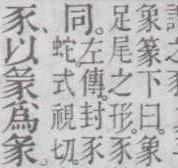 象篆下曰。象
足尾之形。豕
同。左傳封豕
蛇。式視切。
豕、以彖為彖。